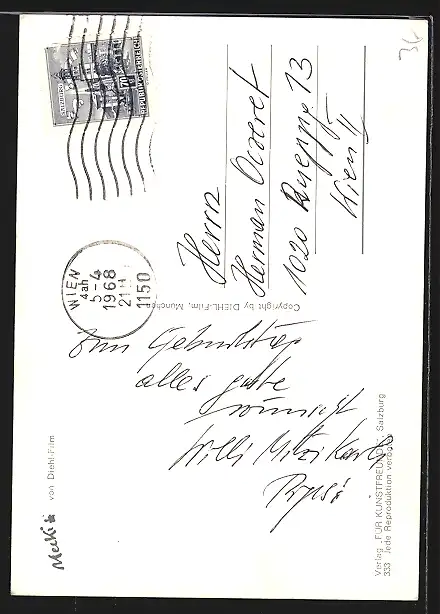 Zum Geburtstag
alles gute
wünscht
Willi Mitzi Karl
Herrn
Herman
1020
13
Wien II
WIEN
4ah
5-4
1968
21
1150
REPUBLIK ÖSTERREICH
70
Copyright by DIEHL-Film, München
Mecki
von Diehl-Film
Verlag „FÜR KUNSTFREUNDE", Salzburg
333 Jede Reproduktion verboten